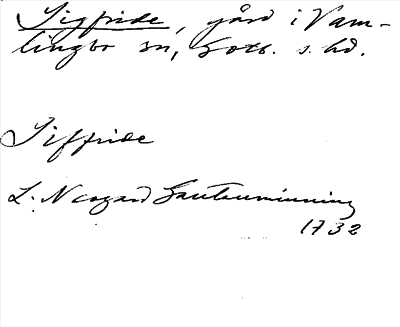 Sigfride, gård i Vam-
lingbo sn, Gotl. s. hd.
Siffride
L. Neogard Gautauminning
1732